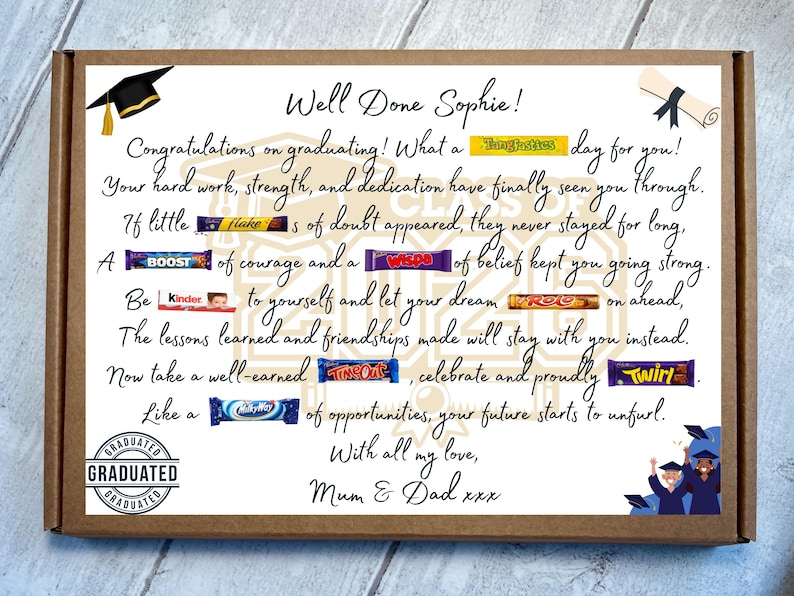 Well Done Sophie!
Congratulations on graduating! What a Tangfastics day for you!
Your hard work, strength, and dedication have finally seen you through.
If little Cadbury flake s of doubt appeared, they never stayed for long,
A BOOST of courage and a Wispa of belief kept you going strong.
Be Kinder. to yourself and let your dream ROLO on ahead,
The lessons learned and friendships made will stay with you instead.
Now take a well-earned TimeOut, celebrate and proudly Twirl.
Like a MilkyWay of opportunities, your future starts to unfurl.
With all my love,
Mum & Dad xxx
CLASS OF
2026
GRADUATED
GRADUATED
GRADUATED